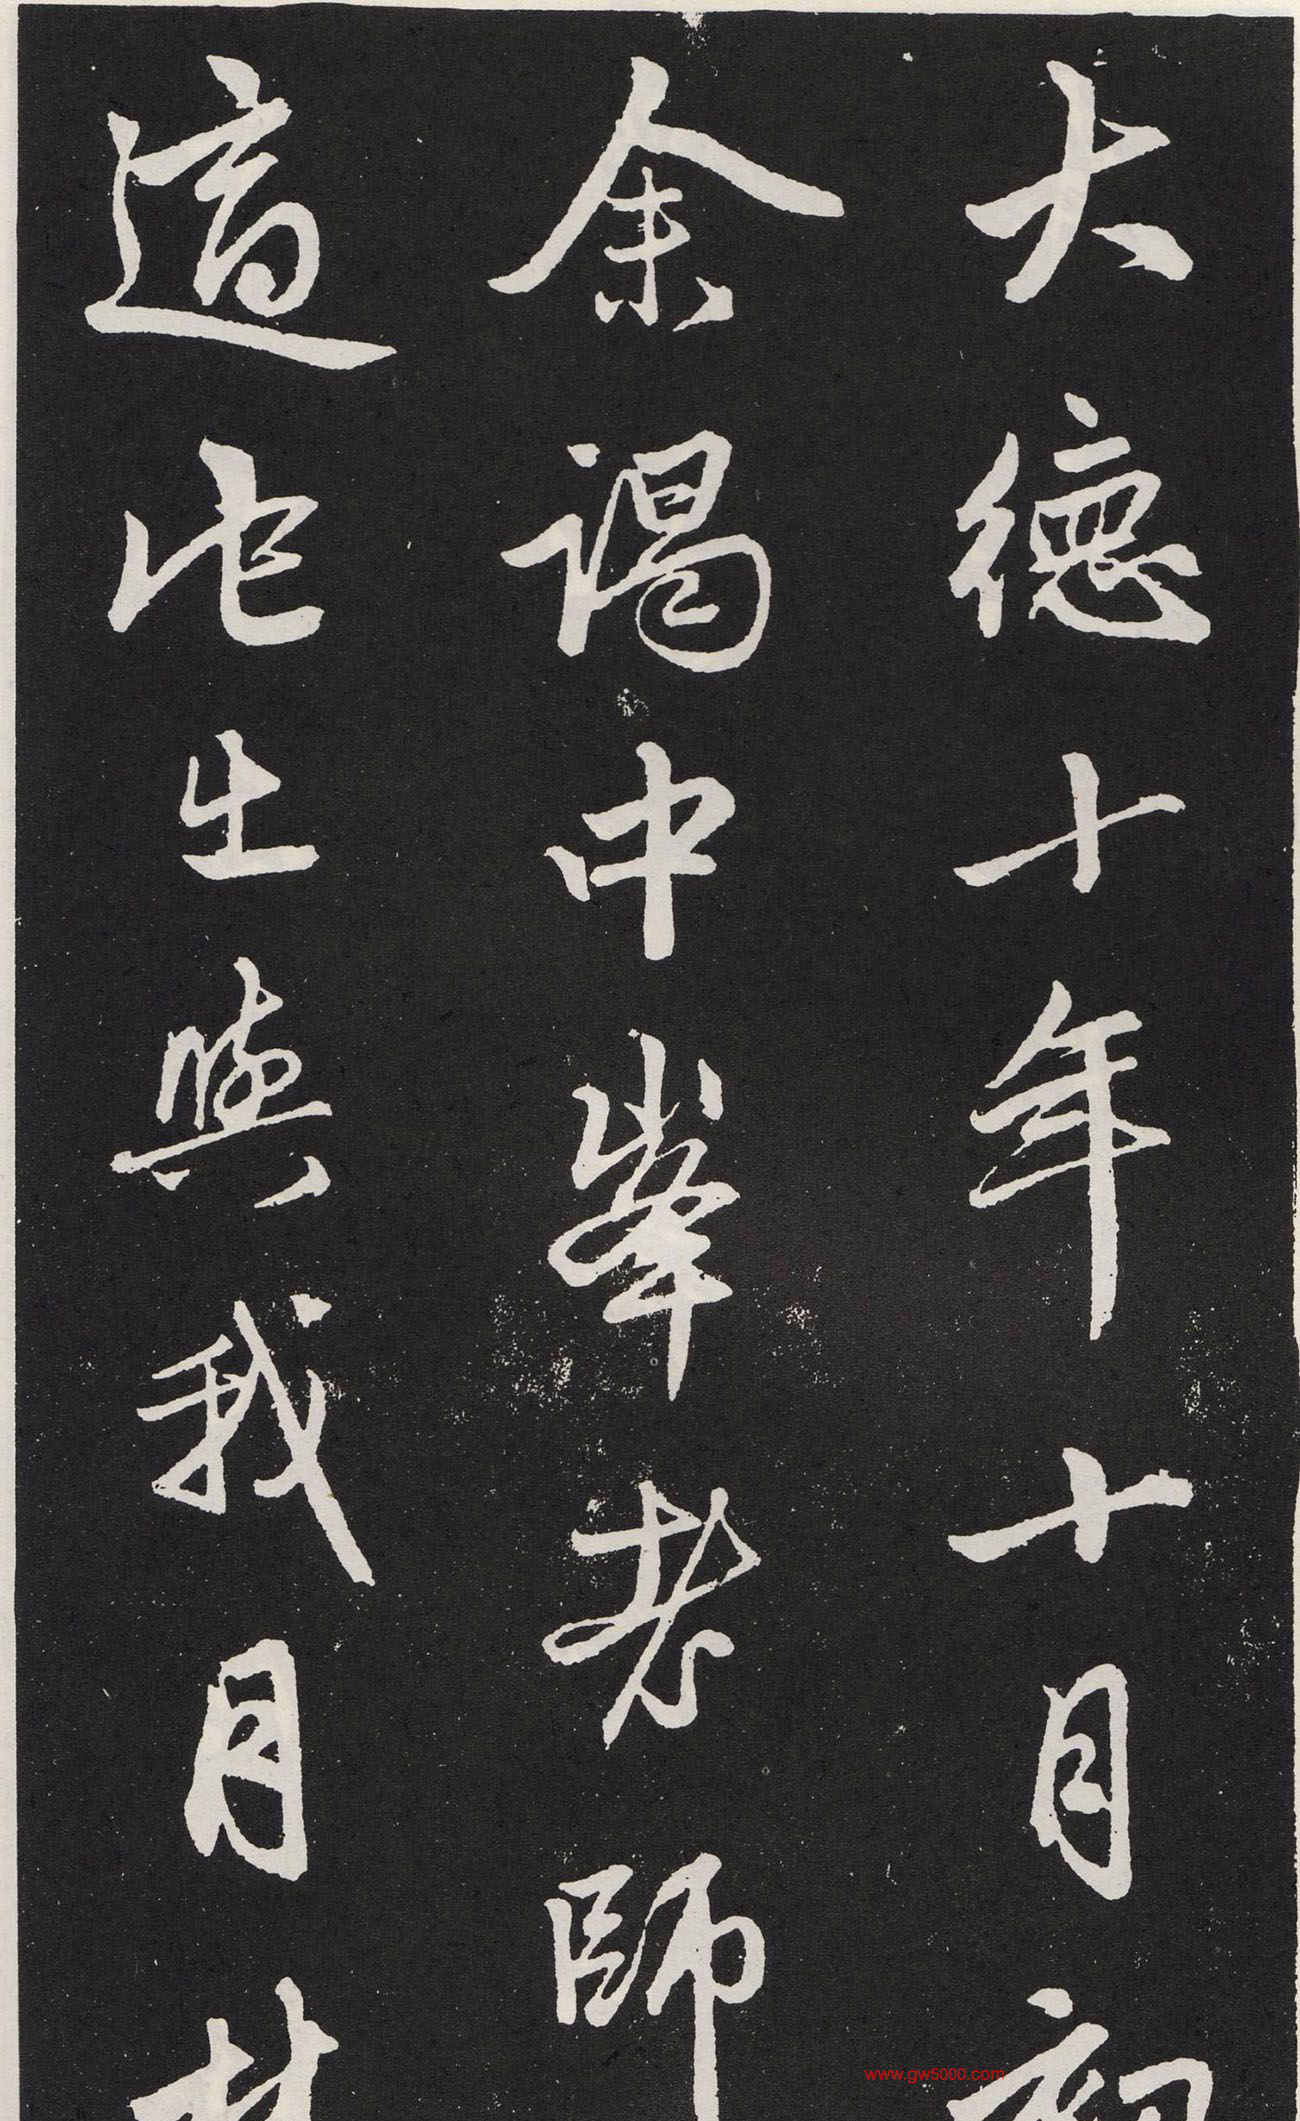 大德十年十月初
余謁中峯老師
適此出與我月
www.gw5000.com